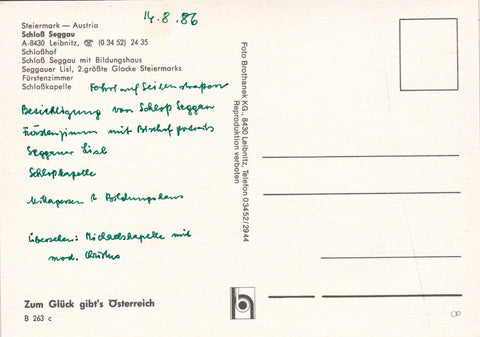 14.8.86
Steiermark — Austria
Schloß Seggau
A-8430 Leibnitz, ☎ (0 34 52) 24 35
Schloßhof
Schloß Seggau mit Bildungshaus
Seggauer Lisl, 2.größte Glocke Steiermarks
Fürstenzimmer
Schloßkapelle
Fahrt auf Seitenstrassen
Besichtigung von Schloß Seggau
Fürstenzimmer mit Bischof portraits
Seggauer Lisl
Schloßkapelle
Mittagessen Bildungshaus
Übersehen: Michaelskapelle mit
mod. Christus
Zum Glück gibt's Österreich
B 263 c
Foto Brothanek KG., 8430 Leibnitz, Telefon 0 34 52/29 44
Reproduktion verboten
b